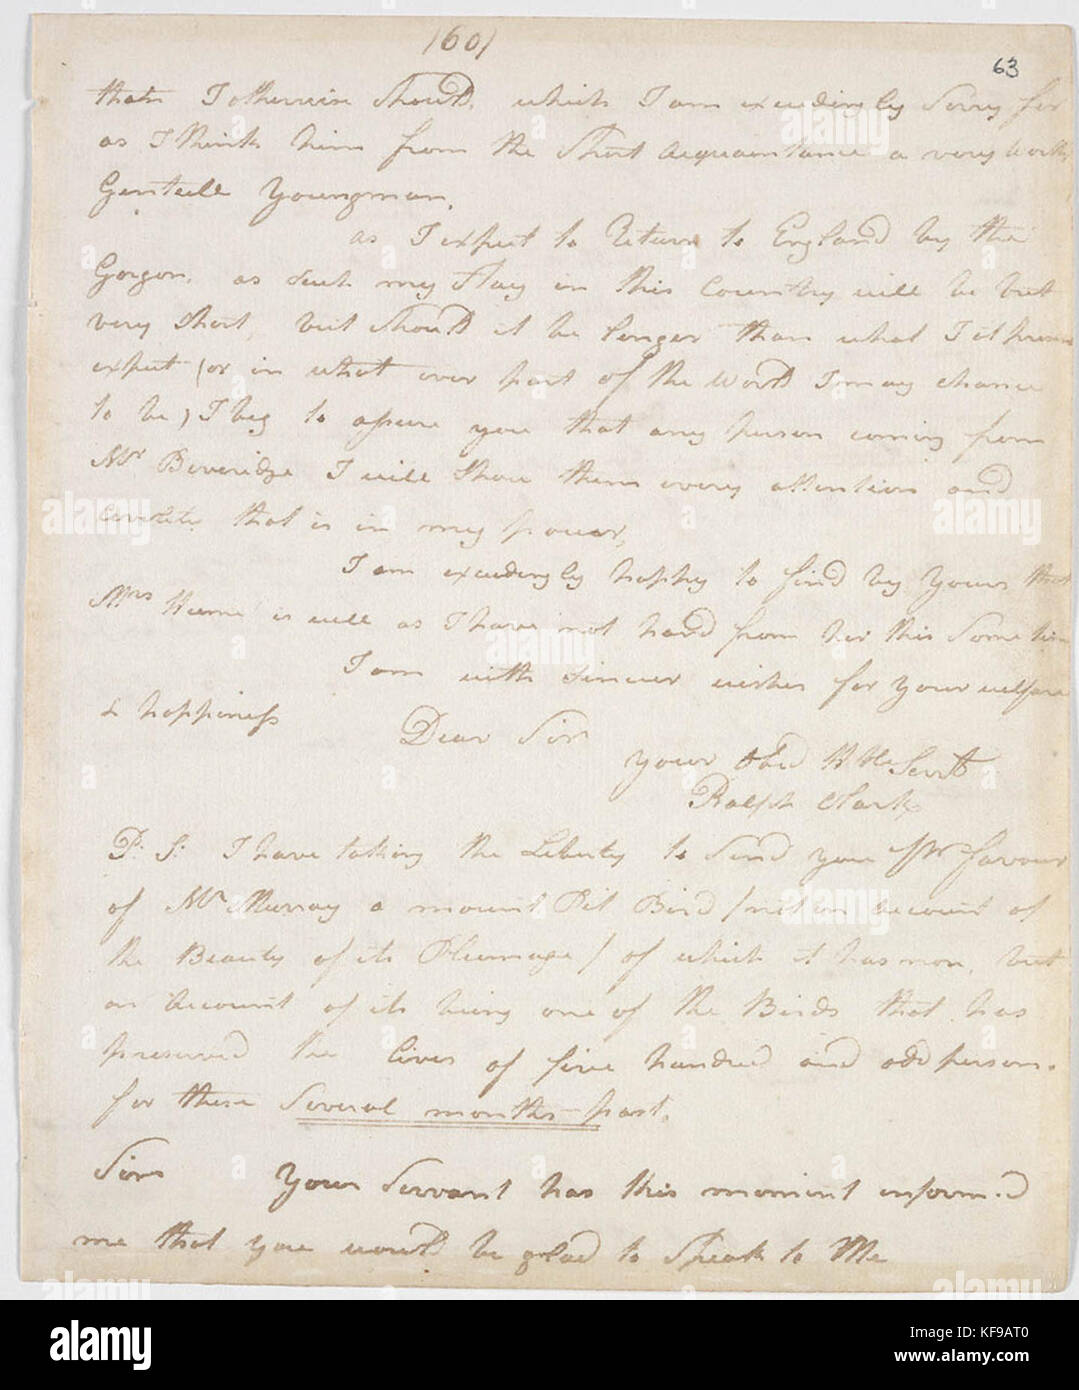 /60/
63
than I otherwise Should, which I am exceedingly Sorry for
as I think him from the Short acquaintance a very Worthy
Genteele Youngman.
as I expect to Return to England by the
Gorgon, as Such my Stay in this Country will be but
very Short, but Should it be longer than what I at present
expect (or in what ever part of the World I may chance
to be) I beg to assure you that any person coming from
Mr Beveridge I will Show them every attention and
civility that is in my power,
I am exceedingly happy to find by Yours that
Mrs Hume is well as I have not hard from her this Some time
I am with Sincer wishes for your welfare
& happiness
Dear Sir
your Obd H'ble Servt
Ralph Clark
P: S: I have taking the Liberty to Send you favour
of Mr Murray a mount Pit Bird / not on Account of
the Beauty of its Plumage / of which it has non, but
on Account of its being one of the Birds that has
preserved the lives of five hundred and odd persons
for these Several months past.
Sir Your Servant has this moment inform.d
me that you would be glad to Speak to Me
alamy
Image ID: KF9AT0
www.alamy.com